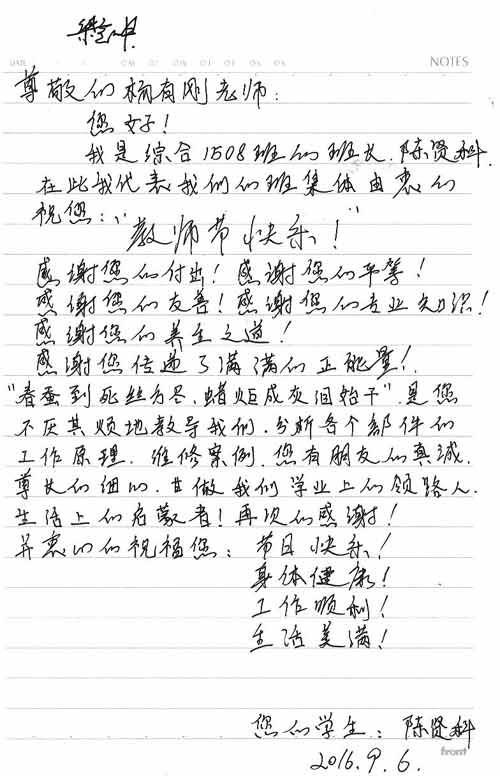 DATE
NOTES
尊敬们杨有刚老师：
您好！
我是综合1508班们班长.陈贤科.
在此我代表我们们班集体由衷们
祝您："
教师节快乐！"
感谢您们付出！感谢您们平等！
感谢您们友善！感谢您们专业知识！
感谢您们养生之道！
感谢您传递了满满们正能量！
"春蚕到死丝方尽，蜡炬成灰泪始干".是您
不厌其烦地教导我们.分析各个部件们
工作原理.维修案例.您有朋友们真诚.
尊长们细心.甘做我们学业上们领路人.
生活上们启蒙者！再次们感谢！
并衷心们祝福您：节日快乐！
身体健康！
工作顺利！
生活美满！
您们学生：陈贤科
front
2016.9.6.